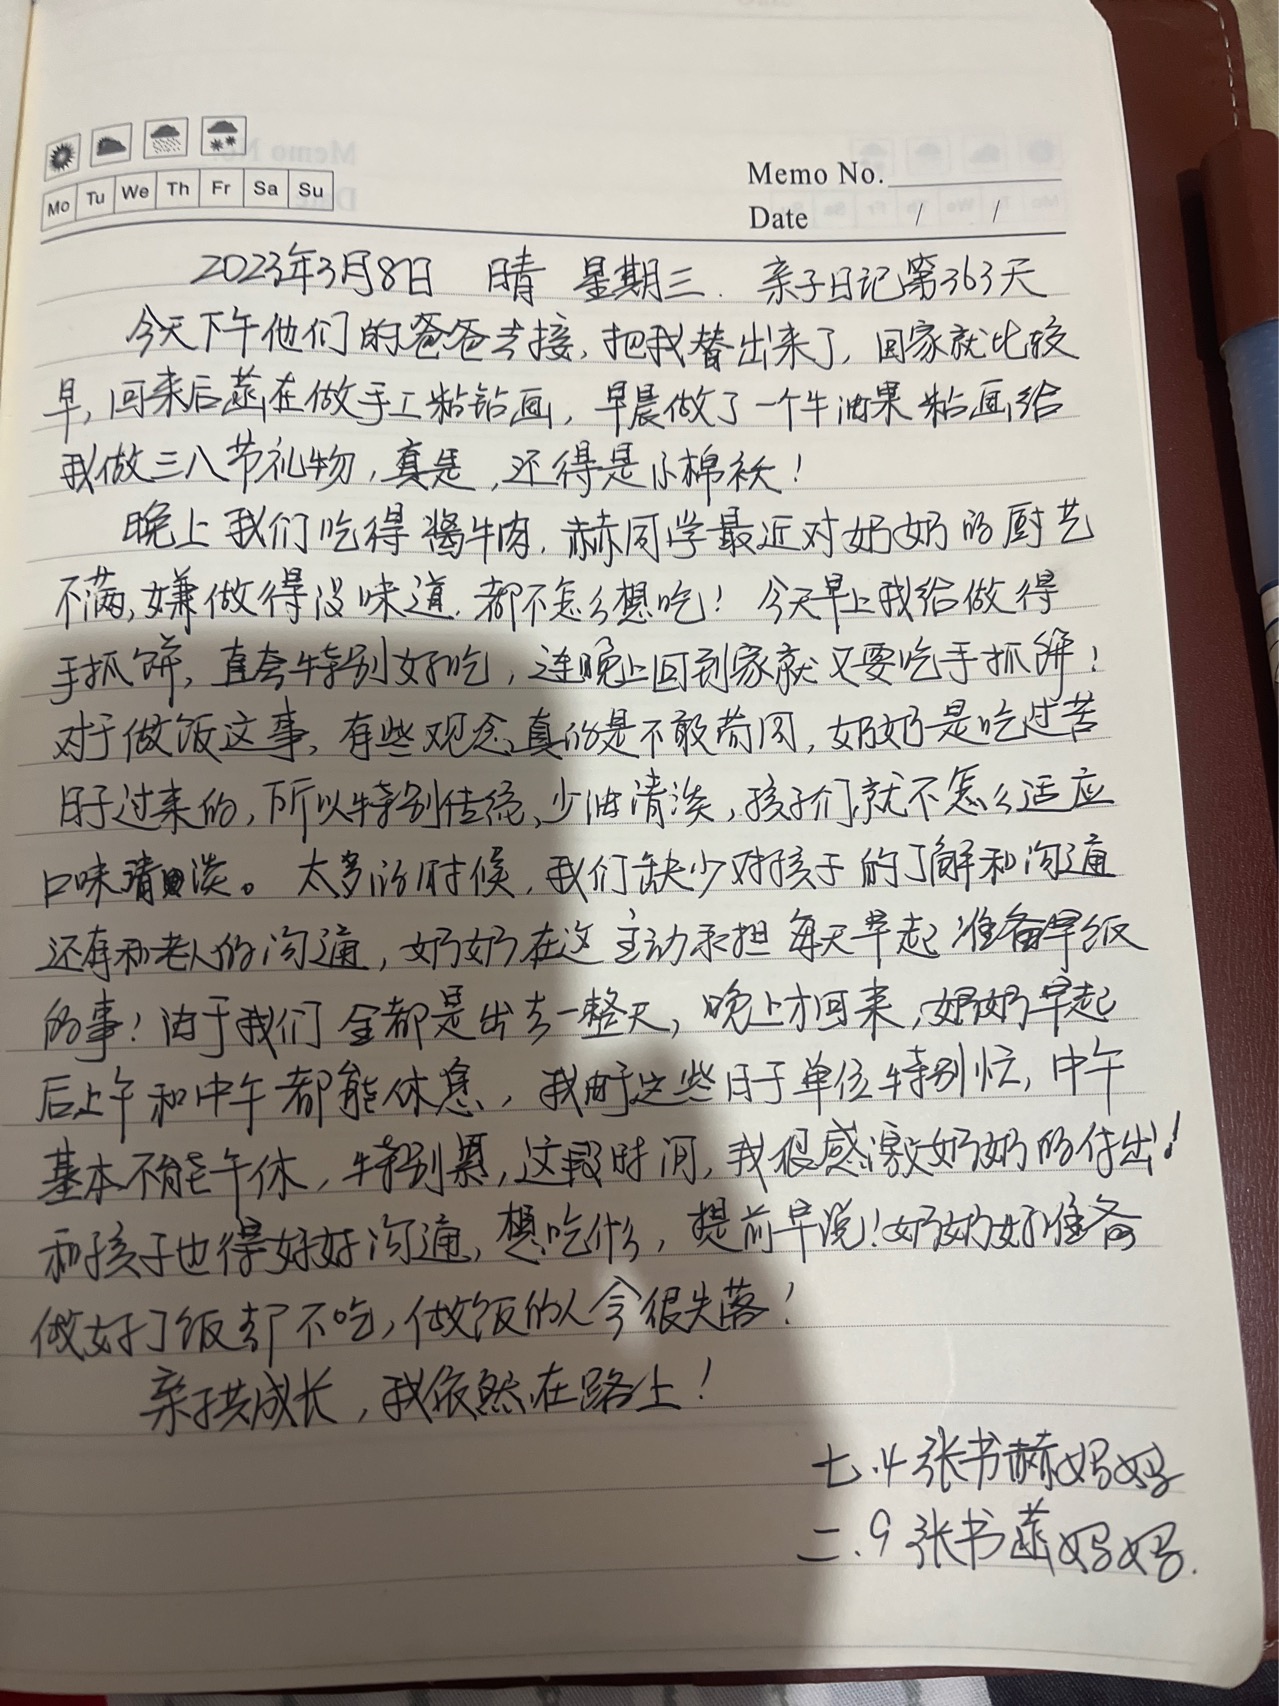 Mo Tu We Th Fr Sa Su
Memo No.
Date / /
2023年3月8日 晴 星期三. 亲子日记第363天
今天下午他们的爸爸去接,把我替出来了,回家就比较
早,回来后菡在做手工粘钻画,早晨做了一个牛油果粘画给
我做三八节礼物,真是,还得是小棉袄!
晚上我们吃得酱牛肉,赫同学最近对奶奶的厨艺
不满,嫌做得没味道,都不怎么想吃!今天早上我给做得
手抓饼,直夸特别好吃,连晚上回到家就又要吃手抓饼!
对于做饭这事,有些观念真的是不敢苟同,奶奶是吃过苦
日子过来的,所以特别传统,少油清淡,孩子们就不怎么适应
口味清淡。太多的时候,我们缺少对孩子的了解和沟通
还有和老人的沟通,奶奶在这主动承担每天早起准备早饭
的事!由于我们全都是出去一整天,晚上才回来,奶奶早起
后上午和中午都能休息,我由于这些日子单位特别忙,中午
基本不能午休,特别累,这段时间,我很感激奶奶的付出!
和孩子也得好好沟通,想吃什么,提前早说!奶奶好准备
做好了饭却不吃,做饭的人会很失落!
亲子共成长,我依然在路上!
七.4 张书赫妈妈
二.9 张书菡妈妈.